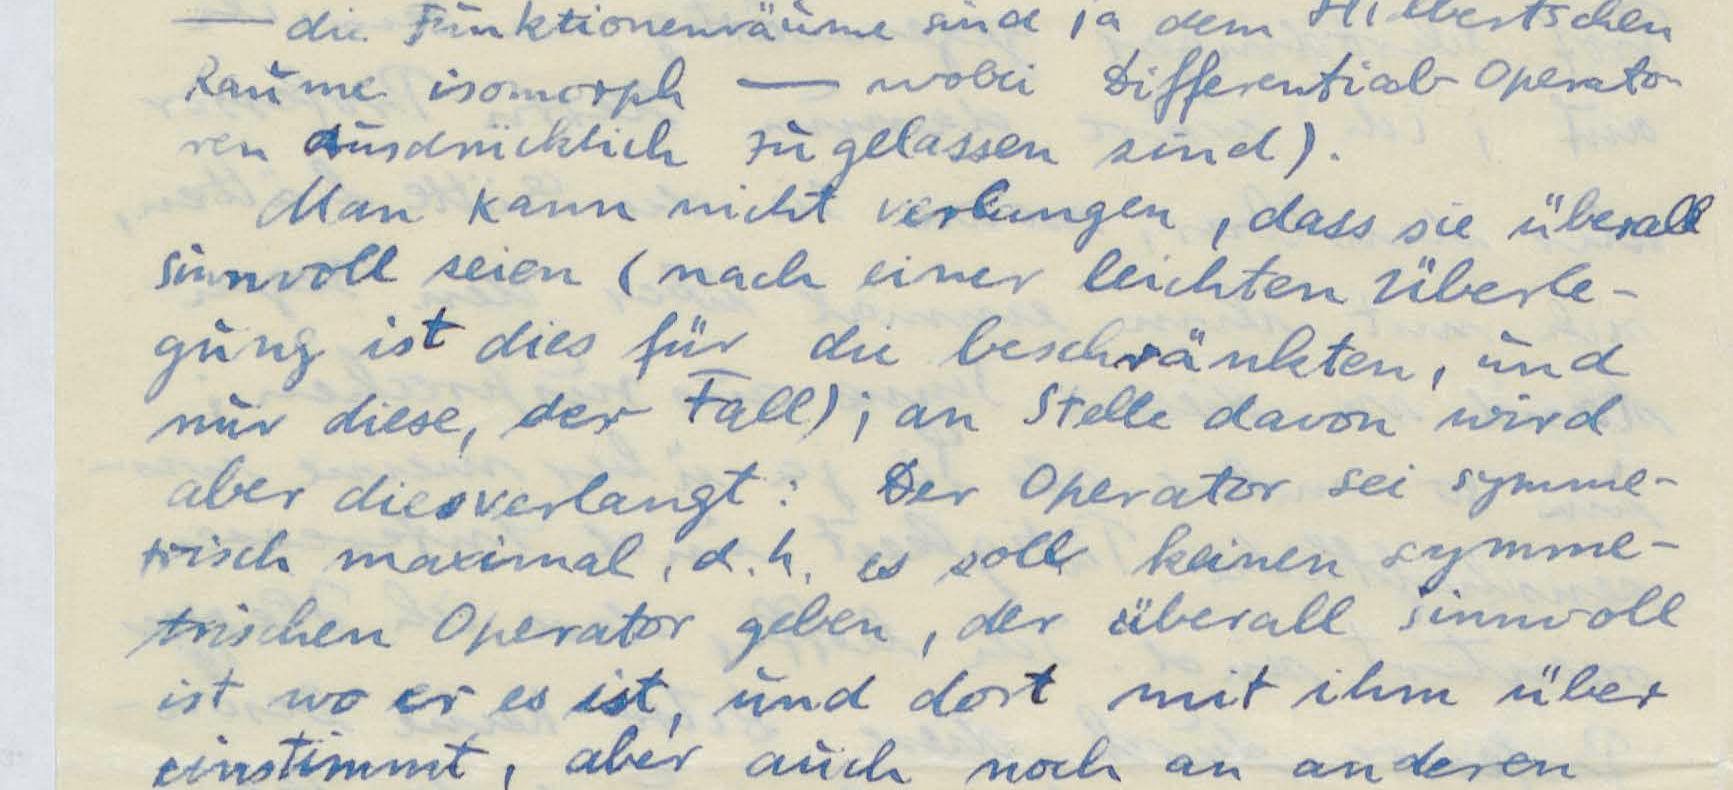 — die Funktionenräume sind ja dem Hilbertschen
Raume isomorph — wobei Differential-Operato-
ren ausdrücklich zugelassen sind).
Man kann nicht verlangen, dass sie überall
sinnvoll seien (nach einer leichten Überle-
gung ist dies für die beschränkten, und
nur diese, der Fall); an Stelle davon wird
aber dies verlangt: Der Operator sei symme-
trisch maximal, d.h. es soll keinen symme-
trischen Operator geben, der überall sinnvoll
ist wo er es ist, und dort mit ihm über
einstimmt, aber auch noch an anderen